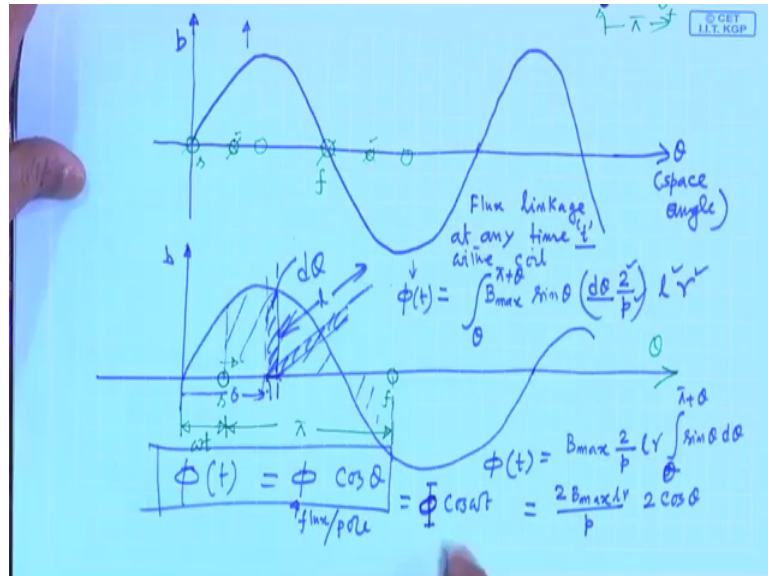 π
© CET
I.I.T. KGP
b
s
f
θ
(space
angle)
Flux linkage
at any time 't'
b
dθ
l
ϕ(t) = ∫_θ^{π+θ} Bmax sinθ (dθ 2/p) l r
θ
s
θ
f
ωt
π
ϕ(t) = Bmax 2/p l r ∫_θ^{π+θ} sinθ dθ
ϕ(t) = ϕ cosθ
flux/pole
= ϕ cosωt = 2 Bmax l r / p 2 cosθ